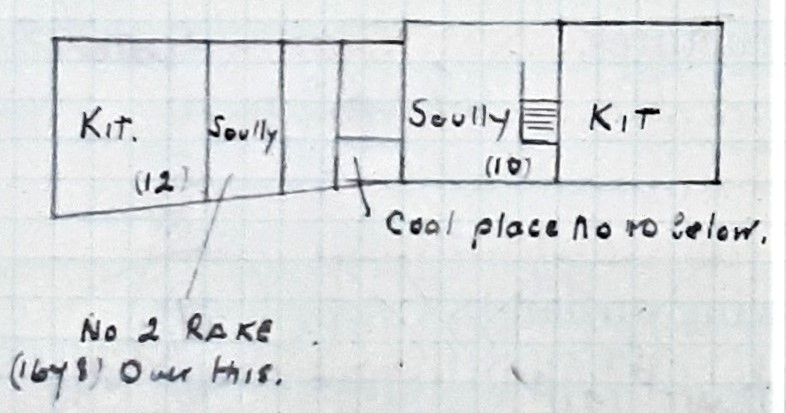 KIT.
Scully
(12)
Scully
(10)
KIT
Coal place No 10 below.
No 2 RAKE
Over this.